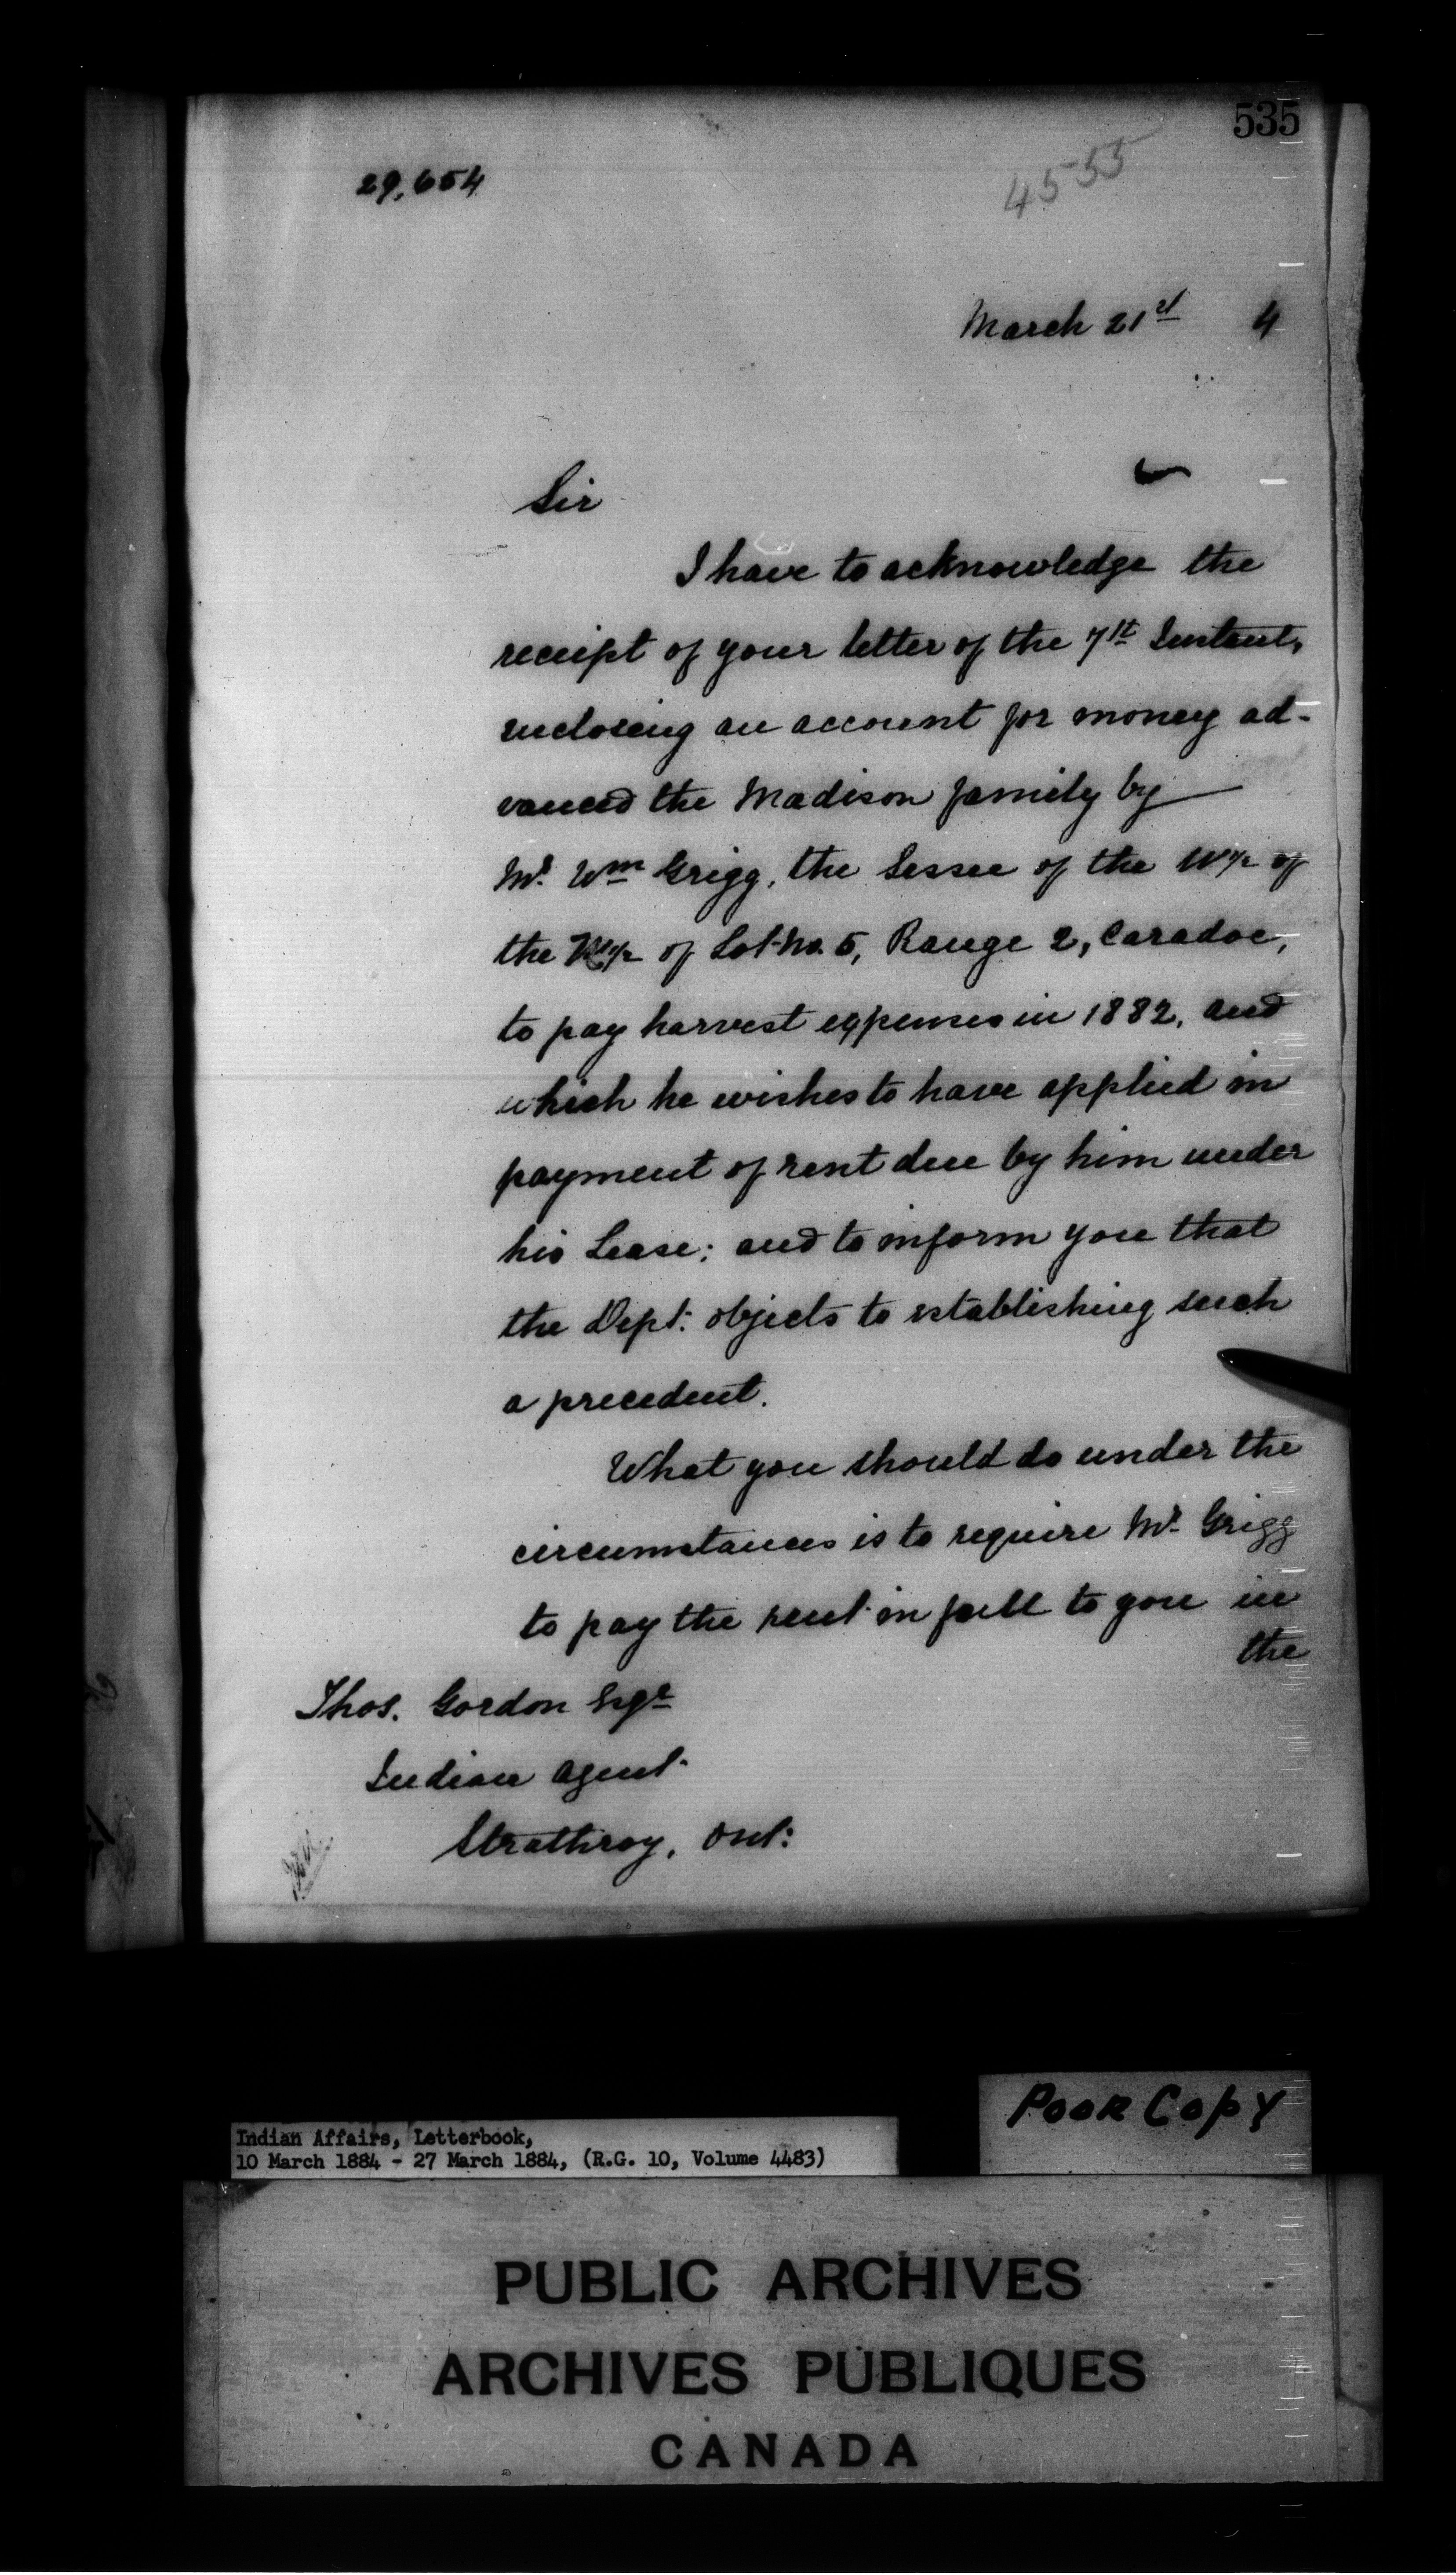 535
29,654
4555
March 21st 4
Sir
I have to acknowledge the
receipt of your letter of the 7th Instant,
enclosing an account for money ad-
vanced the Madison family by
Mr. Wm Grigg, the Lessee of the W½ of
the ½ of Lot No. 5, Range 2, Caradoc,
to pay harvest expenses in 1882, and
which he wishes to have applied in
payment of rent due by him under
his Lease; and to inform you that
the Dept. objects to establishing such
a precedent.
What you should do under the
circumstances is to require Mr. Grigg
to pay the rent in full to you in
the
Thos. Gordon Esqr
Indian Agent
Strathroy, Ont:
Poor Copy
Indian Affairs, Letterbook,
10 March 1884 - 27 March 1884, (R.G. 10, Volume 4483)
PUBLIC ARCHIVES
ARCHIVES PUBLIQUES
CANADA